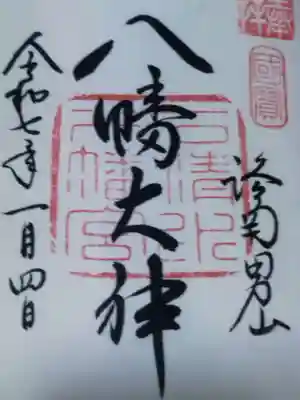 奉拝
國寶
男山
八幡大神
石清水
八幡宮
令和七年一月四日